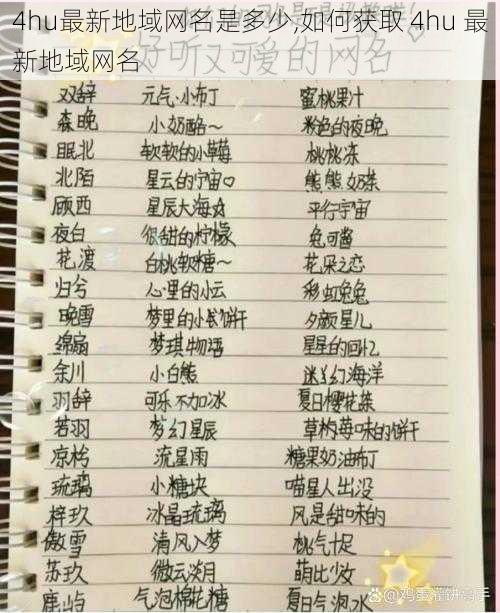 4hu最新地域网名是多少,如何获取 4hu 最
新地域网名
好听又可爱的网名
双辞 元气·小布丁 蜜桃果汁
森晚 小奶酪～ 粉色的夜晚
眠北 软软的小草莓 桃桃冻
北陌 星云的宇宙♡ 熊熊奶茶
顾西 星辰大海☆ 平行宇宙
夜白 很甜的柠檬 兔可酱
花渡 白桃软糖～ 花朵之恋
归兮 心里的小云 彩虹兔兔
晚雪 梦里的小饼干 夕颜星儿
绵扇 梦琪物语 星星的回忆
余川 小白熊 迷幻海洋
羽辞 可乐不加冰 夏日樱花茶
若羽 梦幻星辰 草莓味的饼干
凉柃 流星雨 糖果奶油布丁
琉璃 小糖块 喵星人出没
梓玖 冰晶琉璃 风是甜味的
傲雪 清风入梦 桃气十足
苏玖 微云淡月 萌比少女
鹿屿 气泡棉花糖 夏日气泡水
@鸡蛋灌饼高手